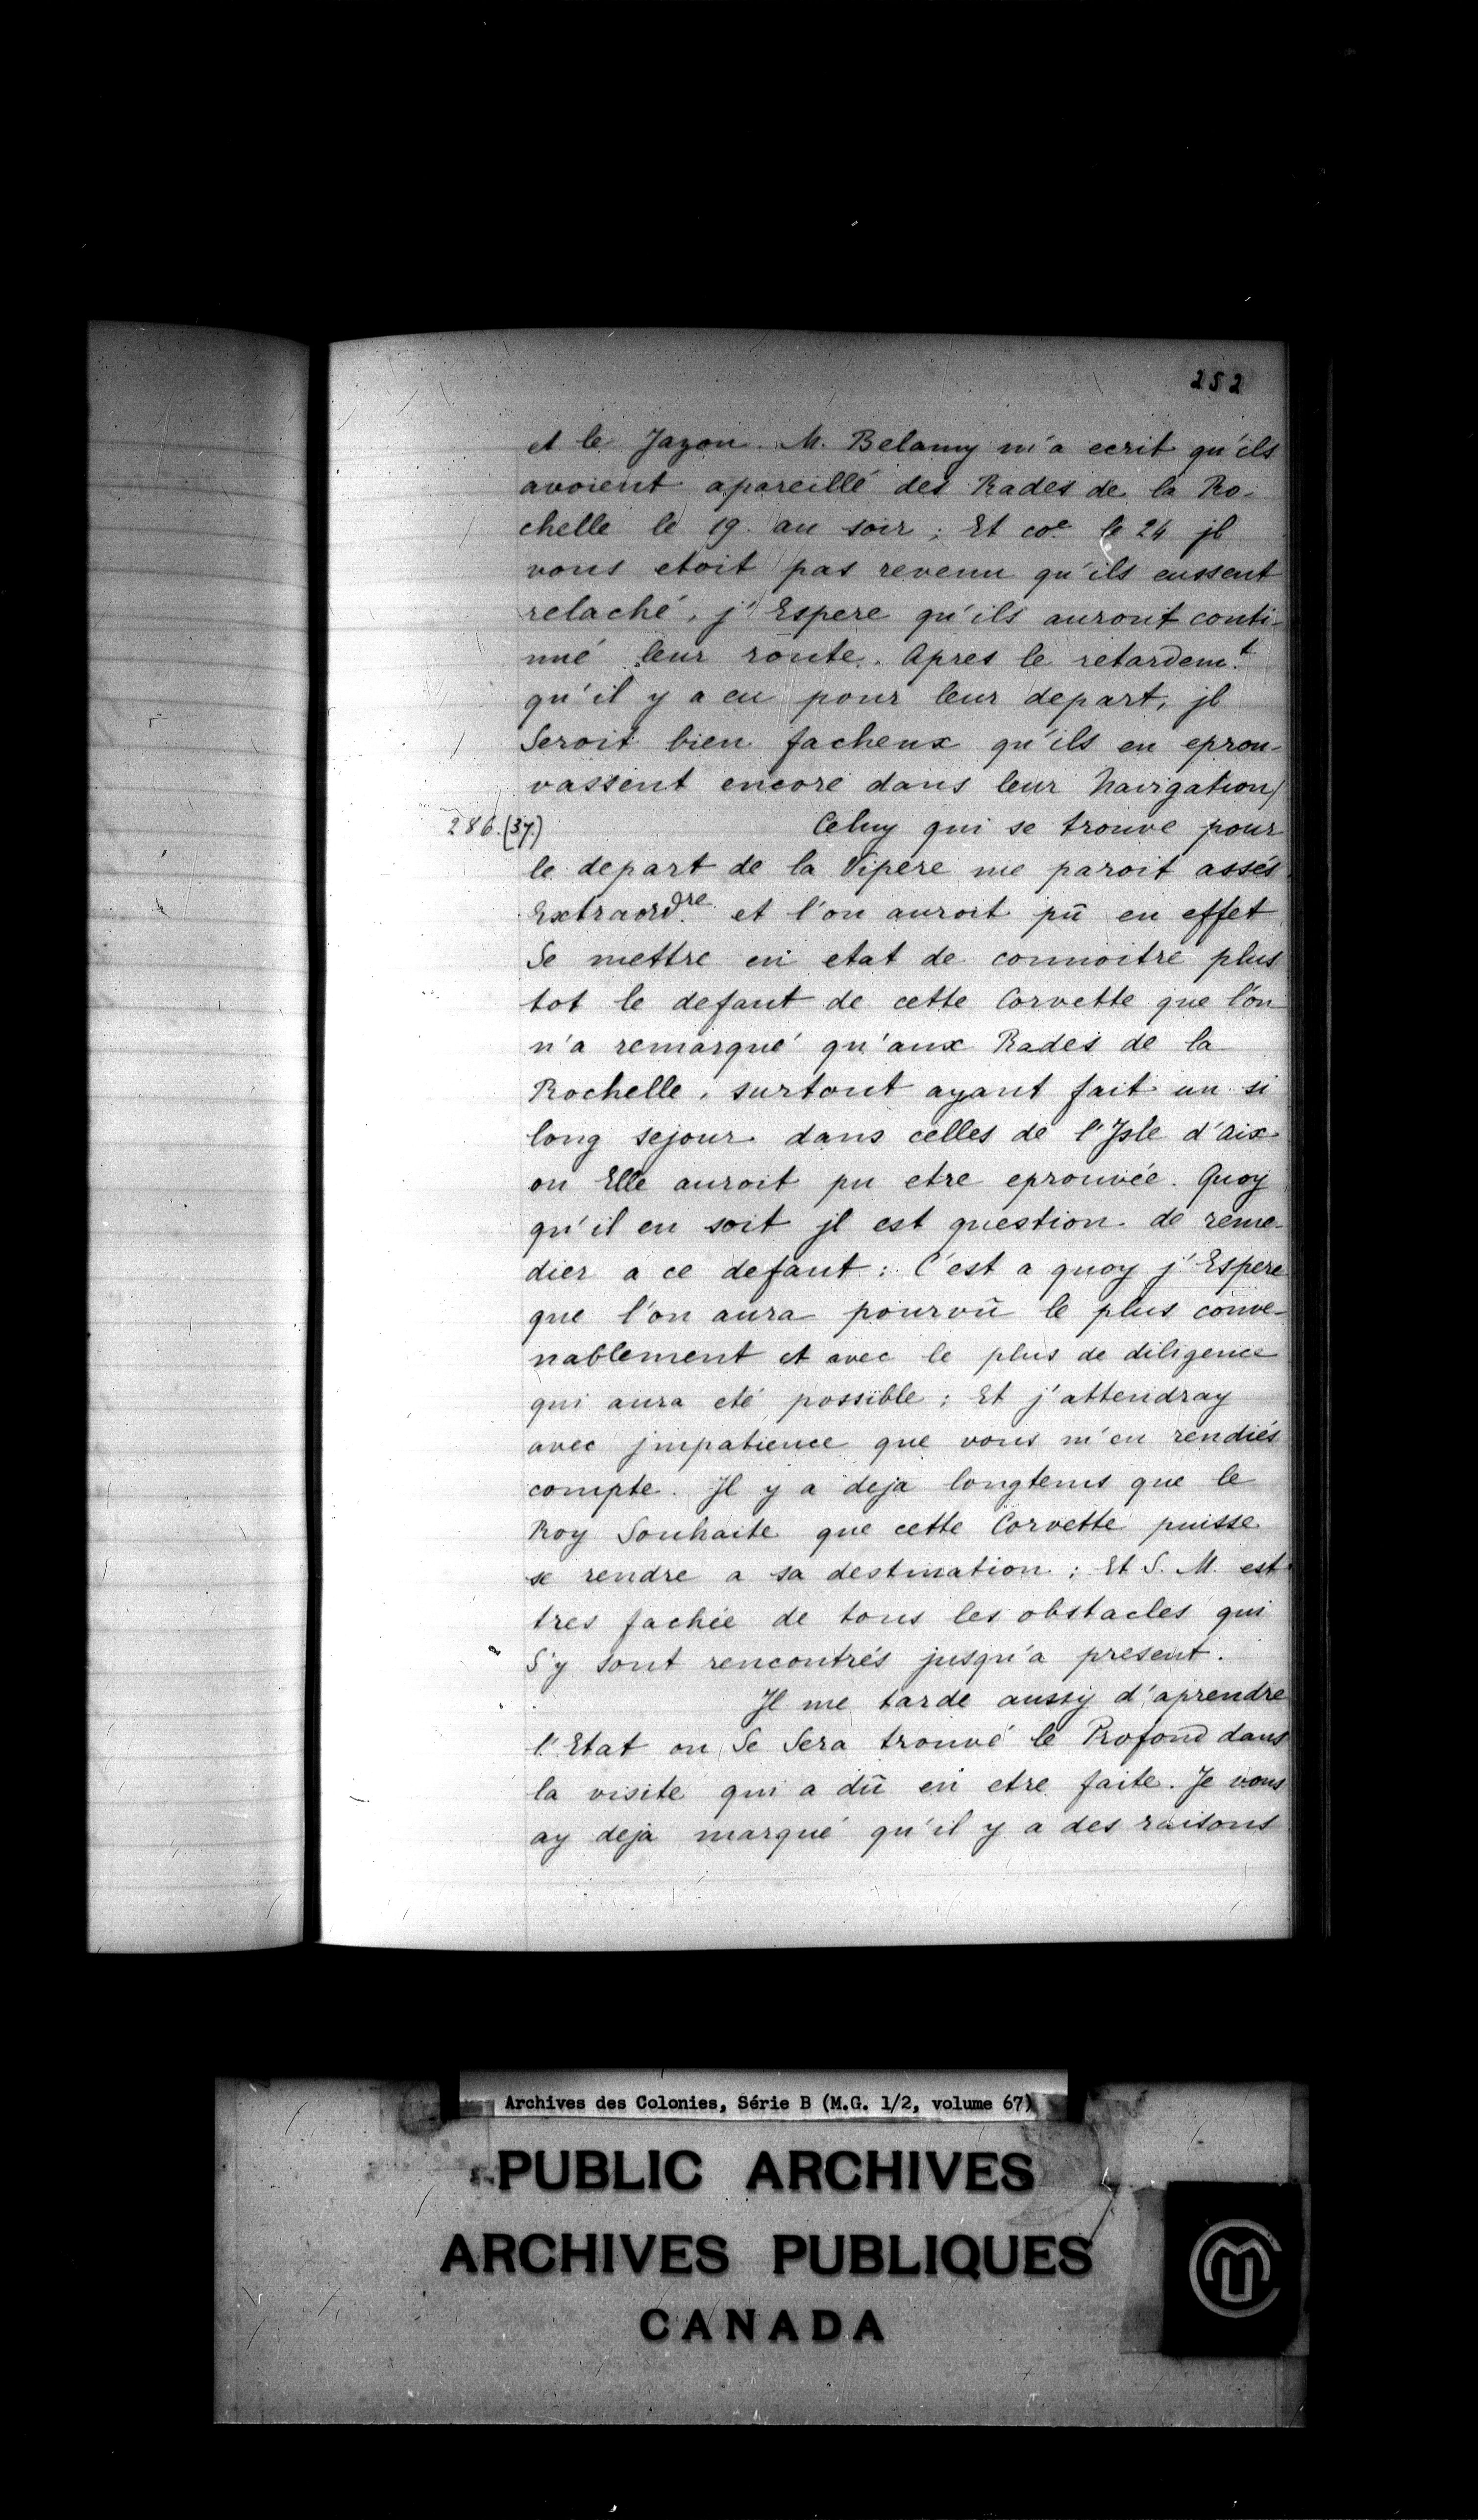 252
et le Jazon. M. Belamy m'a ecrit qu'ils
avoient apareillé des Rades de la Ro-
chelle le 19. au soir ; Et coe le 24 jl
vous etoit pas revenu qu'ils eussent
relaché, j'Espere qu'ils auront conti-
nué leur route. Apres le retardemt
qu'il y a eu pour leur depart, jl
Seroit bien facheux qu'ils en eprou-
vassent encore dans leur Navigation/
286.(37.) Celuy qui se trouve pour
le depart de la Vipere me paroit assés
Extraordre et l'on auroit pû en effet
Se mettre en etat de connoitre plus
tot le defaut de cette Corvette que l'on
n'a remarqué qu'aux Rades de la
Rochelle, surtout ayant fait un si
long sejour dans celles de l'Jsle d'aix
ou Elle auroit pu etre eprouvée. Quoy
qu'il en soit jl est question de reme-
dier a ce defaut : C'est a quoy j'Espere
que l'on aura pourvû le plus conve-
nablement et avec le plus de diligence
qui aura eté possible ; Et j'attendray
avec jmpatience que vous m'en rendiés
compte. Jl y a deja longtems que le
Roy Souhaite que cette Corvette puisse
se rendre a sa destination ; Et S. M. est
tres fachée de tous les obstacles qui
S'y sont rencontrés jusqu'a present.
Jl me tarde aussy d'aprendre
l'Etat ou Se Sera trouvé le Profond dans
la visite qui a dû en etre faite. Je vous
ay deja marqué qu'il y a des raisons
Archives des Colonies, Série B (M.G. 1/2, volume 67)
PUBLIC ARCHIVES
ARCHIVES PUBLIQUES
CANADA